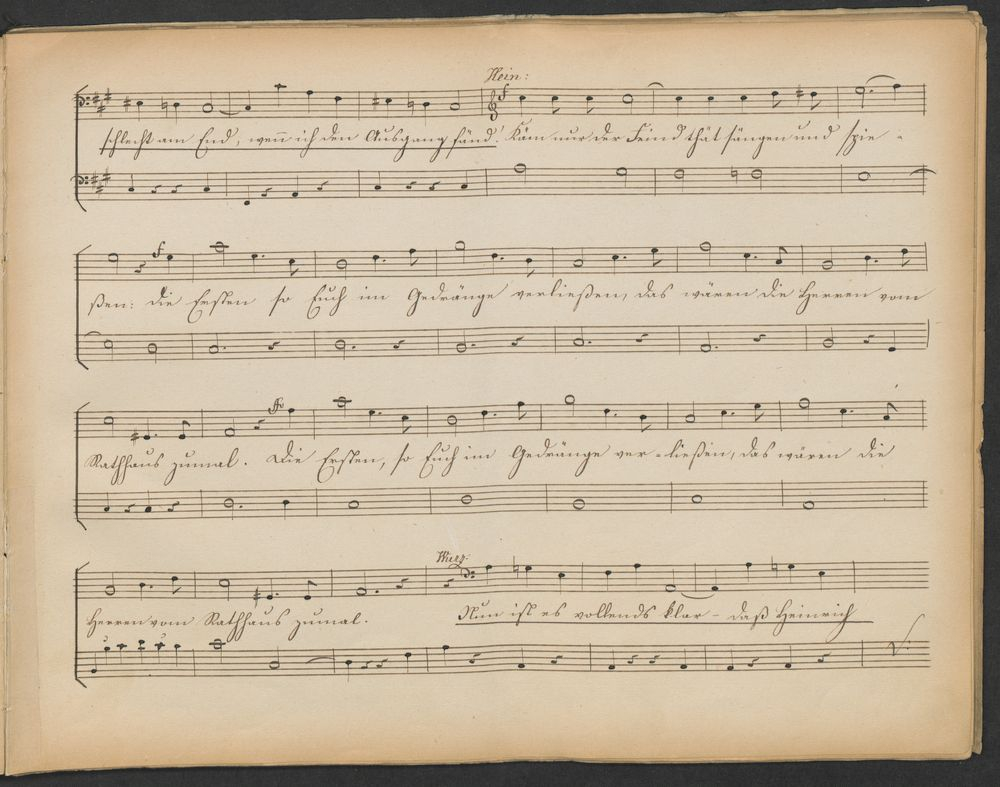 Hein:
schlecht am End, wenn ich den Ausgang fänd! Käm nur der Feind thät sängen und spie-
ßen: die Ersten so Euch im Gedränge verließen, das wären die Herren vom
Rathhaus zumal. Die Ersten, so Euch im Gedränge ver-ließen, das wären die
Wurz:
Herren vom Rathhaus zumal. Nun ist es vollends klar - daß Heinrich